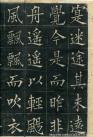 寔迷途其未遠
覺今是而昨非
舟遙遙以輕颺
風飄飄而吹衣